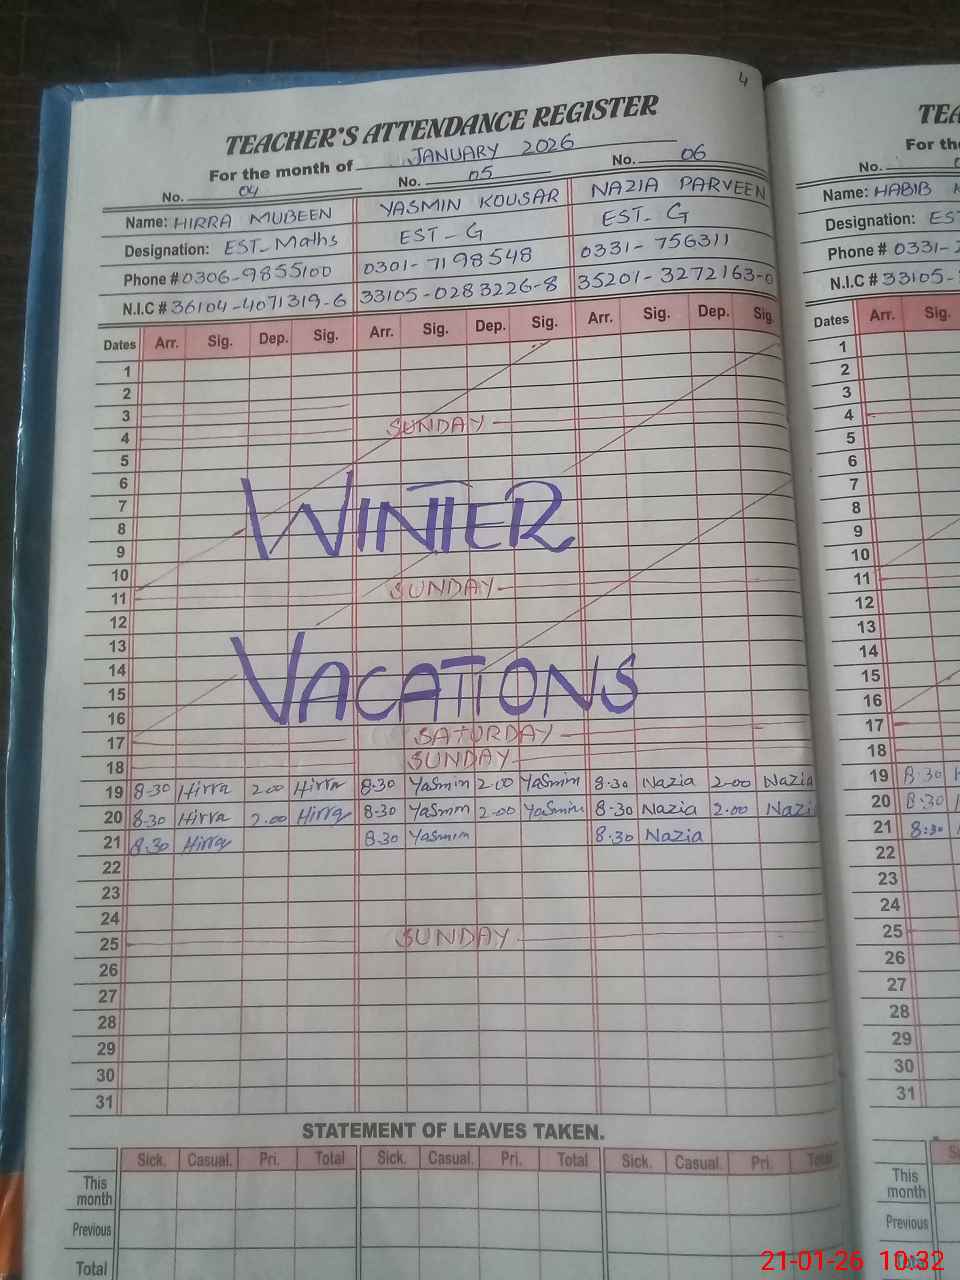 4
TEACHER'S ATTENDANCE REGISTER
For the month of JANUARY 2026
No. 04 No. 05 No. 06
Name: HIRRA MUBEEN YASMIN KOUSAR NAZIA PARVEEN
Designation: EST-Maths EST-G EST-G
Phone # 0306-9855100 0301-7198548 0331-756311
N.I.C # 36104-4071319-6 33105-0283226-8 35201-3272163-0
Dates Arr. Sig. Dep. Sig. Arr. Sig. Dep. Sig. Arr. Sig. Dep. Sig.
1
2
3
4 SUNDAY
5
6
7
8 WINTER
9
10
11 SUNDAY
12
13
14
15 VACATIONS
16
17 SATURDAY
18 SUNDAY
19 8-30 Hirra 2.00 Hirra 8.30 Yasmin 2.00 Yasmin 8.30 Nazia 2-00 Nazia
20 8-30 Hirra 2.00 Hirra 8-30 Yasmin 2-00 Yasmin 8-30 Nazia 2.00 Nazia
21 8.30 Hirra 8.30 Yasmin 8.30 Nazia
22
23
24
25 SUNDAY
26
27
28
29
30
31
STATEMENT OF LEAVES TAKEN.
Sick. Casual. Pri. Total Sick. Casual. Pri. Total Sick. Casual. Pri. Total
This month
Previous
Total
For the
No.
Name: HABIB
Designation: EST
Phone # 0331-
N.I.C # 33105-
Dates Arr. Sig.
1
2
3
4
5
6
7
8
9
10
11
12
13
14
15
16
17
18
19 8.30
20 8.30
21 8:30
22
23
24
25
26
27
28
29
30
31
This month
Previous
Total
21-01-26 10:32